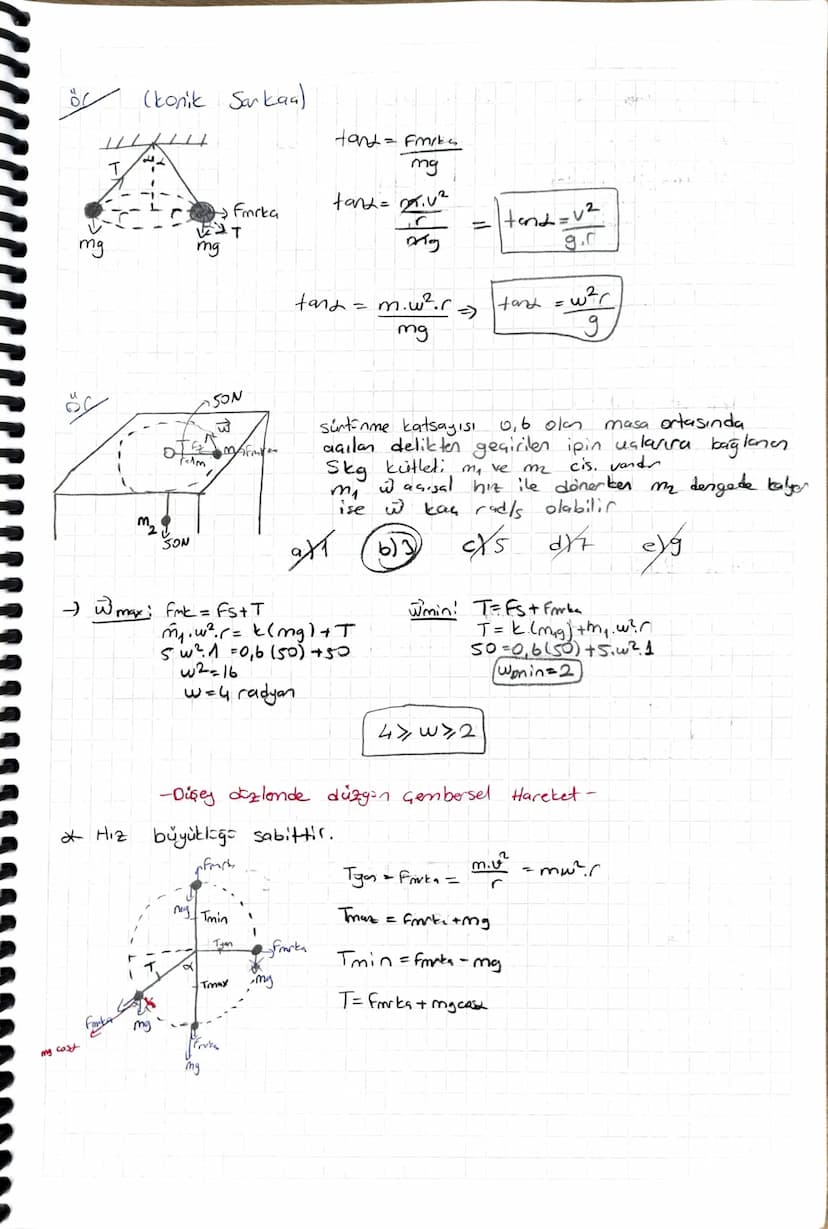 ÖR (Konik Sarkaç)
tanα = Fmrkz / mg
tanα = m.v² / r / mg = tanα = v² / g.r
tanα = m.w².r / mg ⇒ tanα = w²r / g
T
α α
r r
Fmrka
T
mg mg
ÖR
50N
w
O T fs m Fmrka
r=1m
m₂
50N
sürtünme katsayısı 0,6 olan masa ortasında
açılan delikten geçirilen ipin uçlarına bağlanan
5kg kütleli m₁ ve m₂ cis. vardır
m₁ w açısal hız ile dönerken m₂ dengede kalıyor
ise w kaç rad/s olabilir
a) 1 b) 3 c) 5 d) 7 e) 9
→ wmax: Fmk = Fs+T
m₁.w².r = k(mg)+T
5 w².1 = 0,6 (50) +50
w²=16
w=4 radyan
wmin: T=Fs+Fmrka
T= k.(m₁g)+m₁.w².r
50=0,6(50)+5.w².1
wmin=2
4 ≥ w ≥ 2
-Düşey düzlemde düzgün Çembersel Hareket-
* Hız büyüklüğü sabittir.
Tyan = Fmrka = m.v² / r = mw².r
Tmax = Fmrka+mg
Tmin = Fmrka - mg
T= Fmrka + mgcosα
Fmrk
mg Tmin
Tyan Fmrka
T α
mg
Tmax
Fmrka
mg
mg cosα
Fmrka
mg